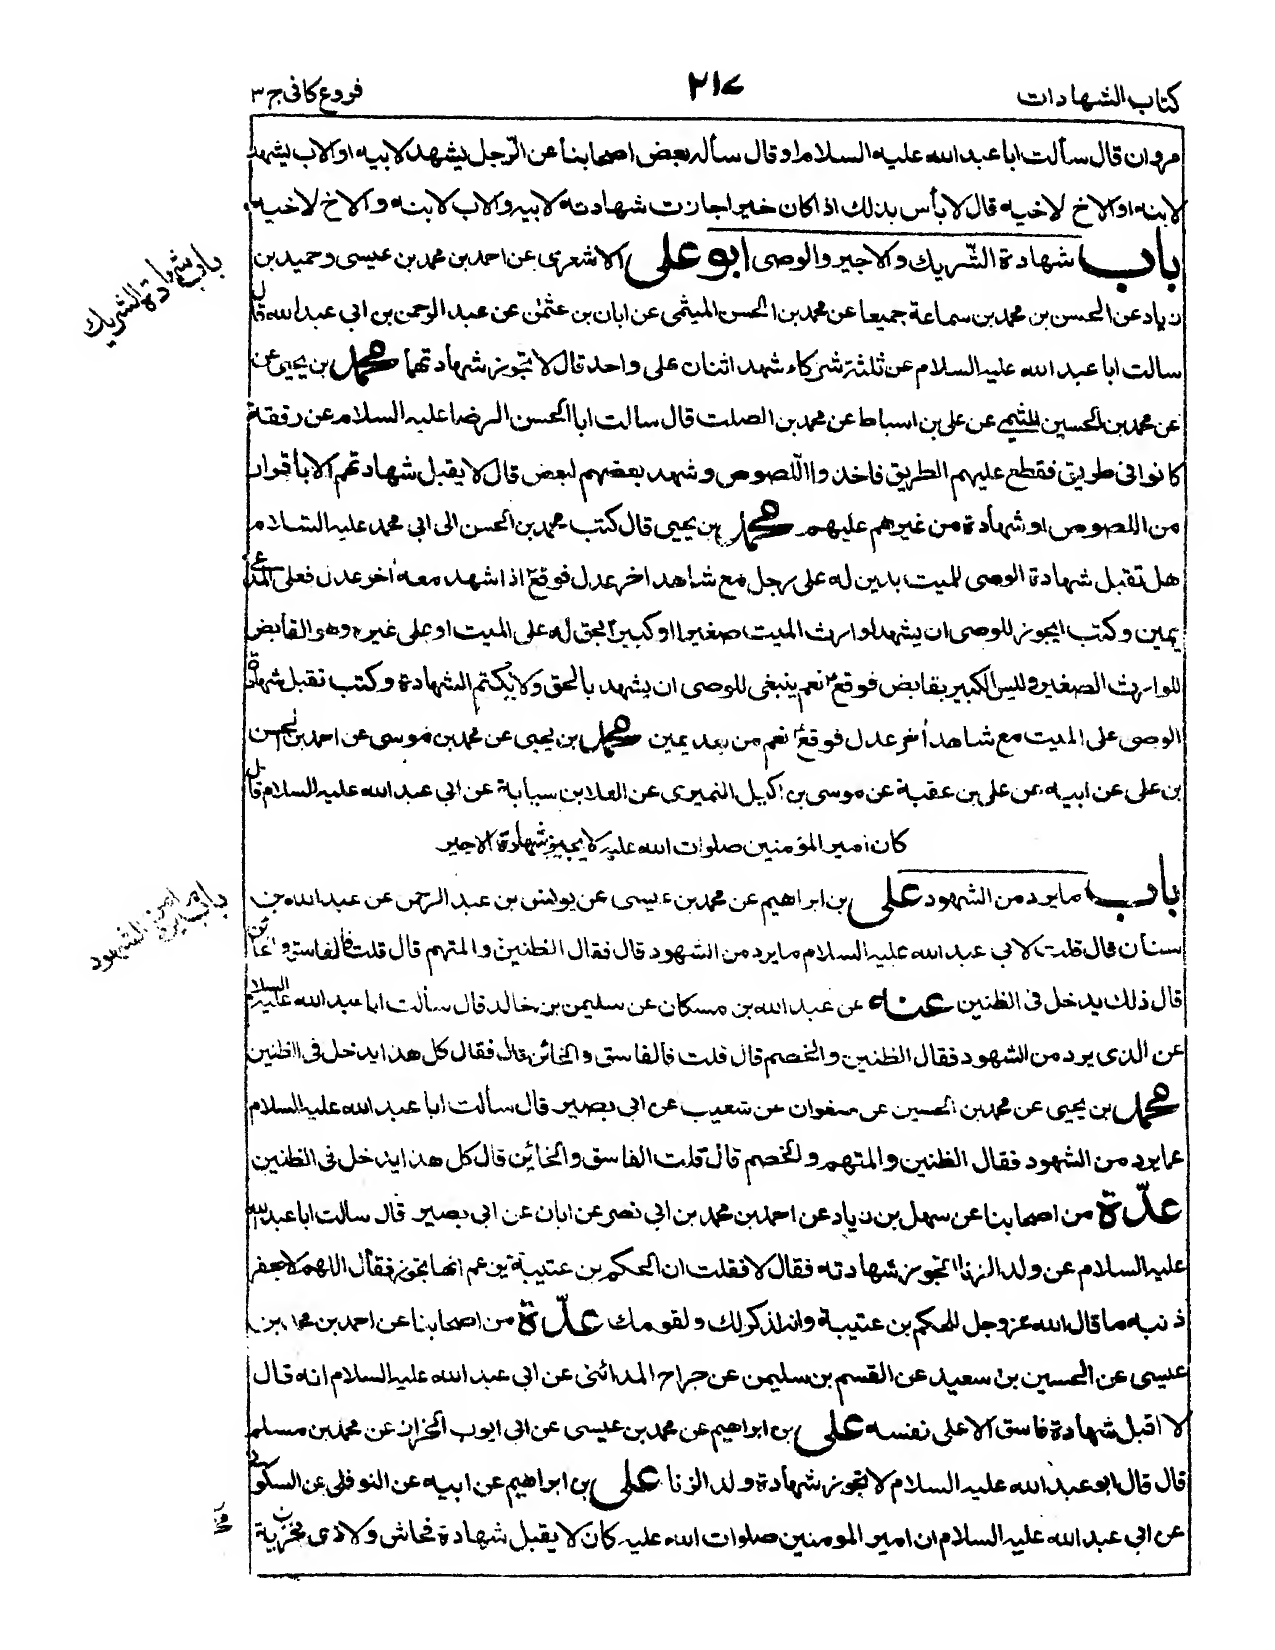 كتاب الشهادات
٢١٧
فروع كافى ج ٣
مروان قال سألت ابا عبد الله عليه السلام او قال سأله بعض اصحابنا عن الرّجل يشهد لابيه او الاب يشهد
لابنه او الاخ لاخيه قال لا بأس بذلك اذا كان خيرا جازت شهادته لابيه والاب لابنه والاخ لاخيه
باب شهادة الشّريك والاجير والوصى ابو على الاشعرى عن احمد بن محمد بن عيسى وحميد بن
زياد عن الحسن بن محمد بن سماعة جميعا عن محمد بن الحسن الميثمى عن ابان بن عثمن عن عبد الرحمن بن ابى عبد الله قال
سالت ابا عبد الله عليه السلام عن ثلثة شركاء شهد اثنان على واحد قال لا تجوز شهادتهما محمد بن يحيى عن
عن محمد بن الحسين الميثمى عن على بن اسباط عن محمد بن الصلت قال سالت ابا الحسن الرضا عليه السلام عن رفقة
كانوا فى طريق فقطع عليهم الطريق فاخذوا اللّصوص وشهد بعضهم لبعض قال لا يقبل شهادتهم الا بأقرار
من اللصوص او شهادة من غيرهم عليهم محمد بن يحيى قال كتب محمد بن الحسن الى ابى محمد عليه السّلام
هل تقبل شهادة الوصى للميت بدين له على رجل مع شاهد اخر عدل فوقع ع اذا شهد معه اخر عدل فعلى المدعى
يمين وكتب ايجوز للوصى ان يشهد لوارث الميت صغيرا او كبيرا بحق له على الميت او على غيره وهو القابض
للوارث الصغير وليس الكبير بقابض فوقع ع نعم ينبغى للوصى ان يشهد بالحق ولا يكتم الشهادة وكتب تقبل شهادة
الوصى على الميت مع شاهد أخر عدل فوقع ع نعم من بعد يمين محمد بن يحيى عن محمد بن موسى عن احمد بن الحسن
بن على عن ابيه عن على بن عقبة عن موسى بن اكيل النميرى عن العلا بن سيابة عن ابى عبد الله عليه السلام قال
كان امير المؤمنين صلوات الله عليه لا يجيز شهادة الاجير
باب شهادة الشريك
باب ما يرد من الشهود على بن ابراهيم عن محمد بن عيسى عن يونس بن عبد الرحمن عن عبد الله بن
سنان قال قلت لابى عبد الله عليه السلام ما يرد من الشهود قال فقال الظنين والمتهم قال قلت فالفاسق والخائن
قال ذلك يدخل فى الظنين عنه عن عبد الله بن مسكان عن سليمن بن خالد قال سألت ابا عبد الله عليه السلام
عن الذى يرد من الشهود فقال الظنين والخصم قال قلت فالفاسق والخائن قال فقال كل هذا يدخل فى الظنين
محمد بن يحيى عن محمد بن الحسين عن صفوان عن شعيب عن ابى بصير قال سألت ابا عبد الله عليه السلام
عما يرد من الشهود فقال الظنين والمتهم والخصم قال قلت الفاسق والخائن قال كل هذا يدخل فى الظنين
عدّة من اصحابنا عن سهل بن زياد عن احمد بن محمد بن ابى نصر عن ابان عن ابى بصير قال سالت ابا عبد الله
عليه السلام عن ولد الزنا اتجوز شهادته فقال لا فقلت ان الحكم بن عتيبة يزعم انها تجوز فقال اللهم لا تغفر
ذنبه ما قال الله عز وجل للحكم بن عتيبة وانه لذكر لك ولقومك عدّة من اصحابنا عن احمد بن محمد بن
عيسى عن الحسين بن سعيد عن القسم بن سليمن عن جراح المدائنى عن ابى عبد الله عليه السلام انه قال
لا اقبل شهادة فاسق الا على نفسه على بن ابراهيم عن محمد بن عيسى عن ابى ايوب الخزاز عن محمد بن مسلم
قال قال ابو عبد الله عليه السلام لا تجوز شهادة ولد الزنا على بن ابراهيم عن ابيه عن النوفلى عن السكونى
عن ابى عبد الله عليه السلام ان امير المومنين صلوات الله عليه كان لا يقبل شهادة فحاش ولا ذى مخزية